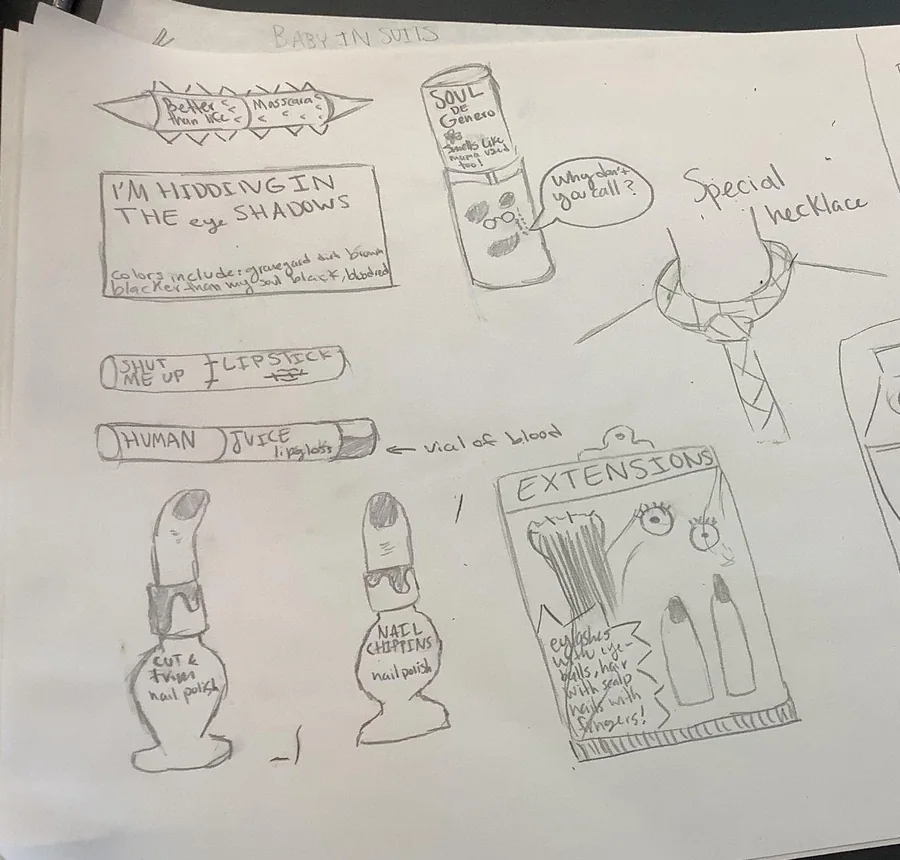 BABY IN SUITS
Better
than life
Masscara
SOUL
DE
Genero
smells like
mama used
too!
Why don't
you call?
Special
necklace
I'M HIDDING IN
THE eye SHADOWS
colors include: graveyard dirt brown
blacker than my soul black, bloodred
SHUT
ME UP
LIPSTICK
HUMAN
JUICE
lipgloss
← vial of blood
EXTENSIONS
eylashes
with eye-
balls, hair
with scalp
nails with
fingers!
CUT &
trim
nail polish
NAIL
CHIPPINS
nail polish